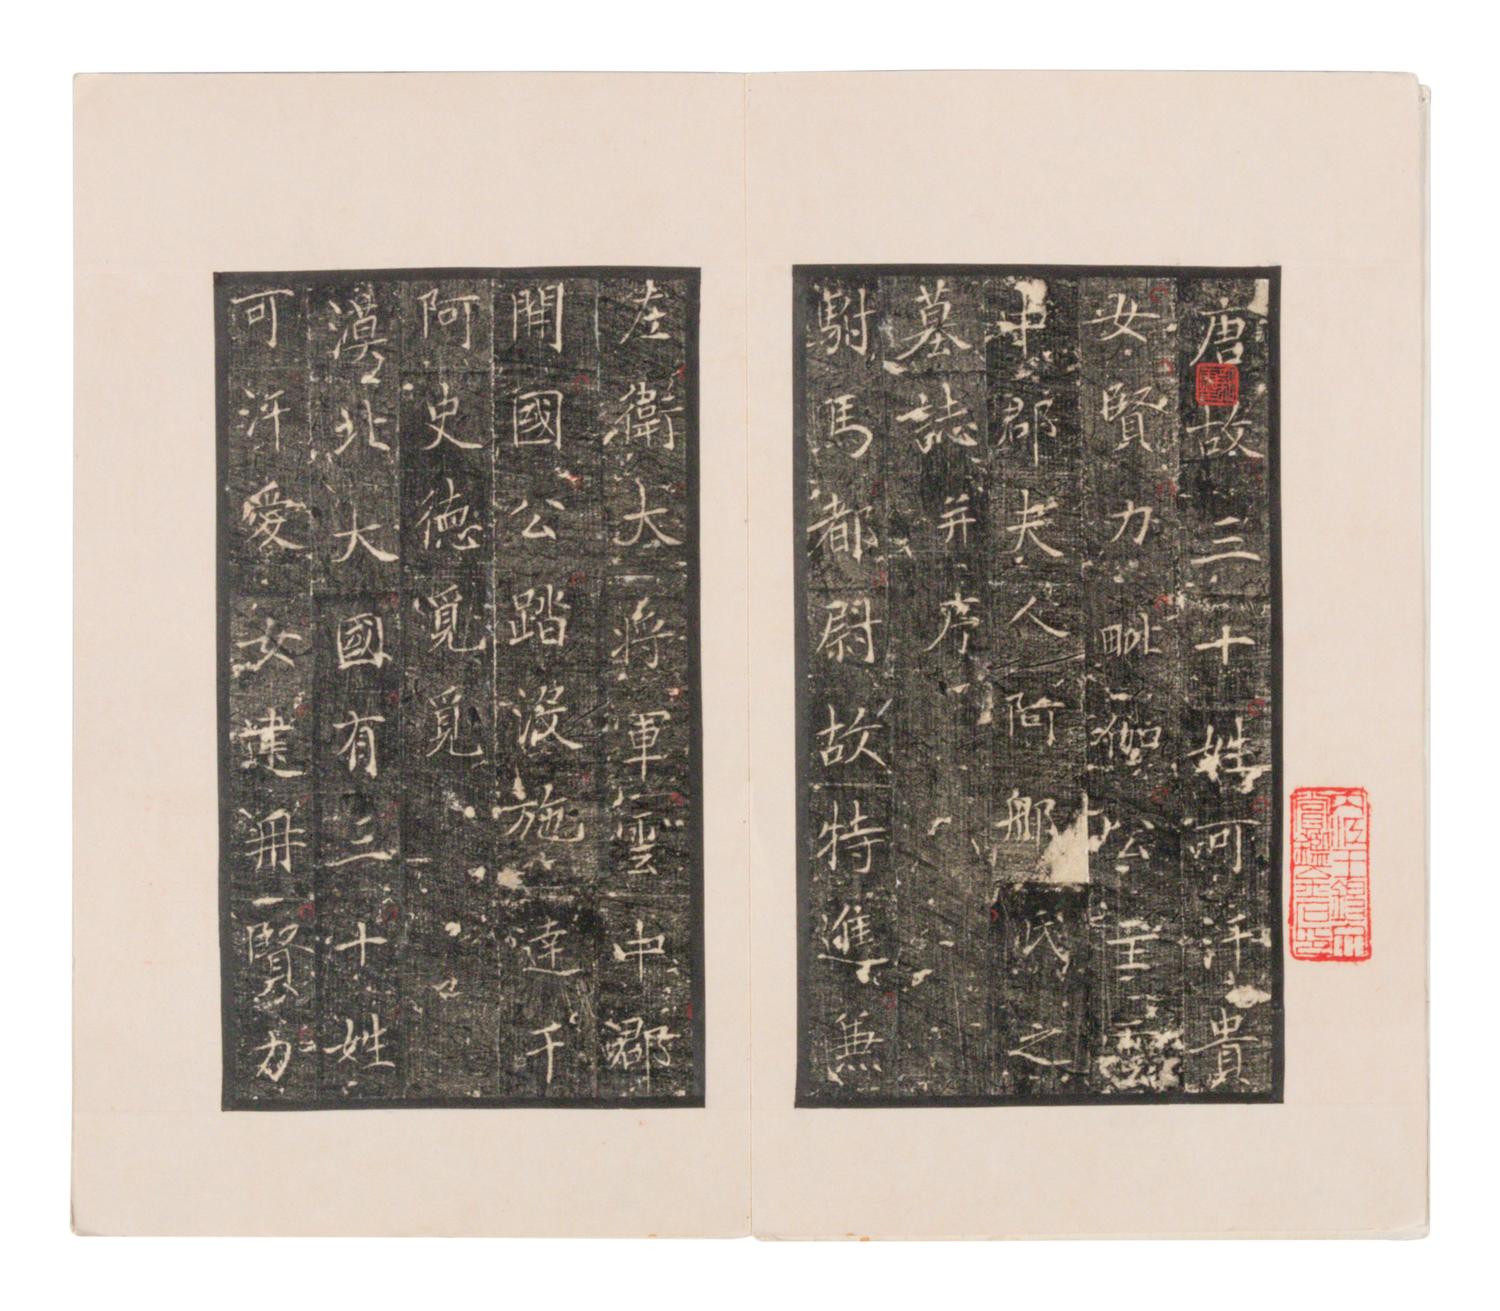 唐故三十姓可汗貴
女賢力毗伽公主雲
中郡夫人阿那氏之
墓誌并序
駙馬都尉故特進兼
左衛大將軍雲中郡
開國公踏没施達干
阿史德覓覓
漠北大國有三十姓
可汗愛女建冊賢力